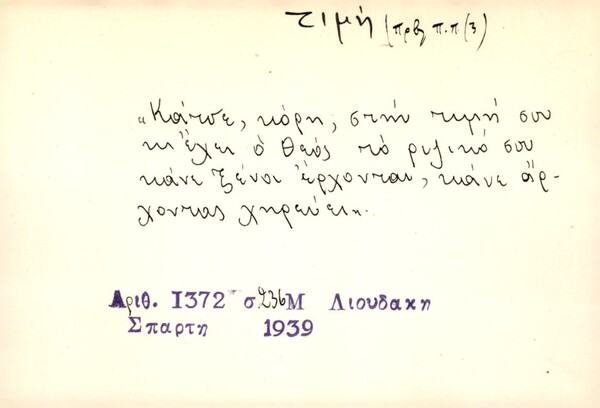 τιμή (πρβ π.π (3)
«Κάτσε, κόρη, στήν τιμή σου
κι' ἔχει ὁ Θεός τό ριζικό σου
κάνε ξένοι ἔρχονται, κάνε ἄρ-
χοντας χηρεύει».
Αριθ. 1372 σ 236 Μ Λιουδακη
Σπαρτη 1939